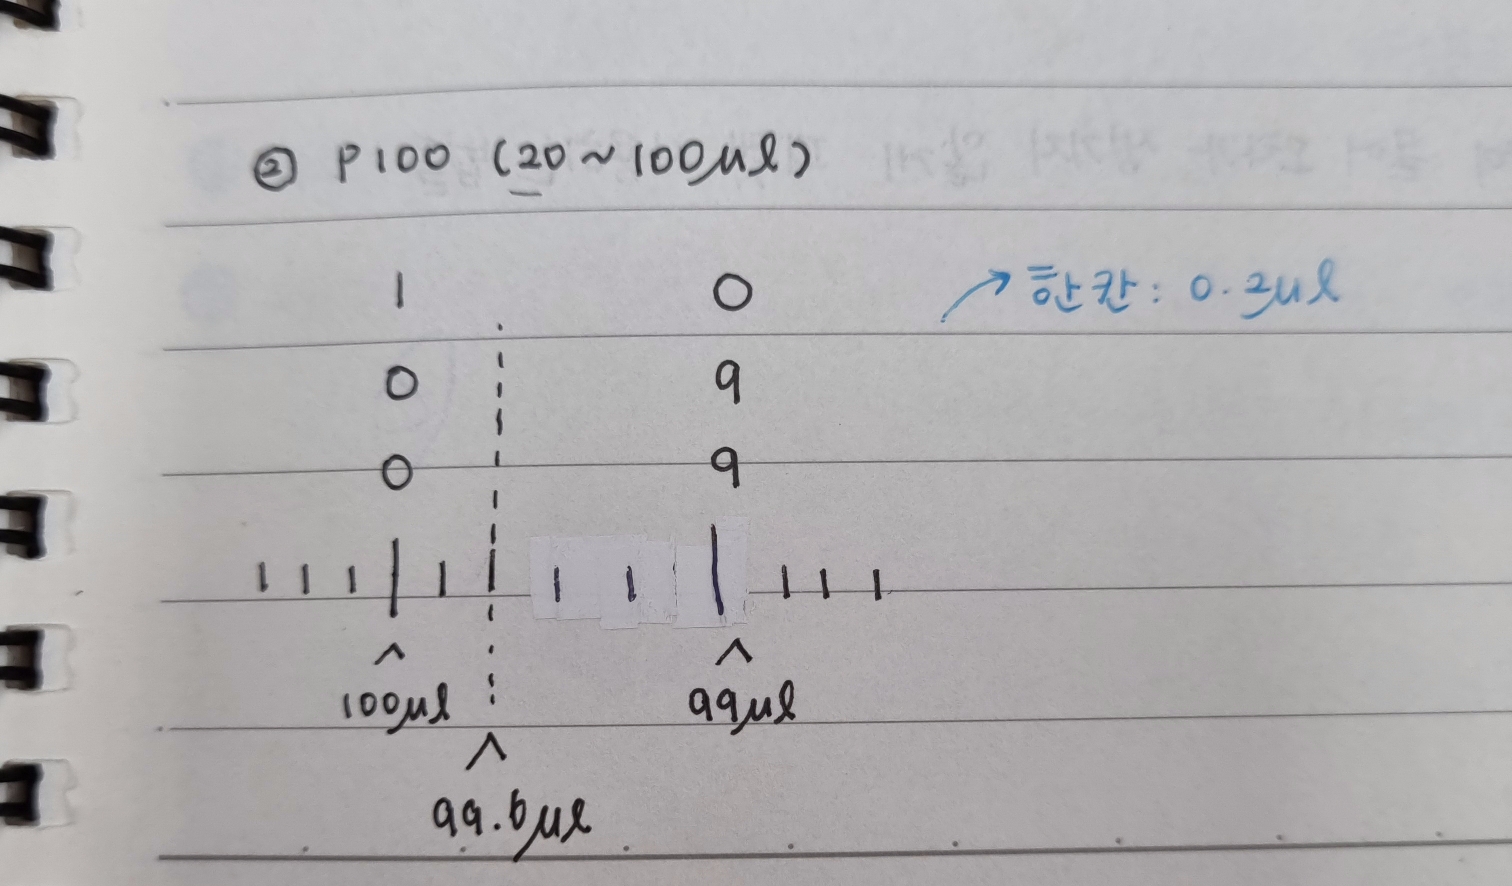 ② P100 (20~100μl)
1 0
↗ 한칸: 0.2μl
0 9
0 9
^ ^
100μl 99μl
^
99.6μl